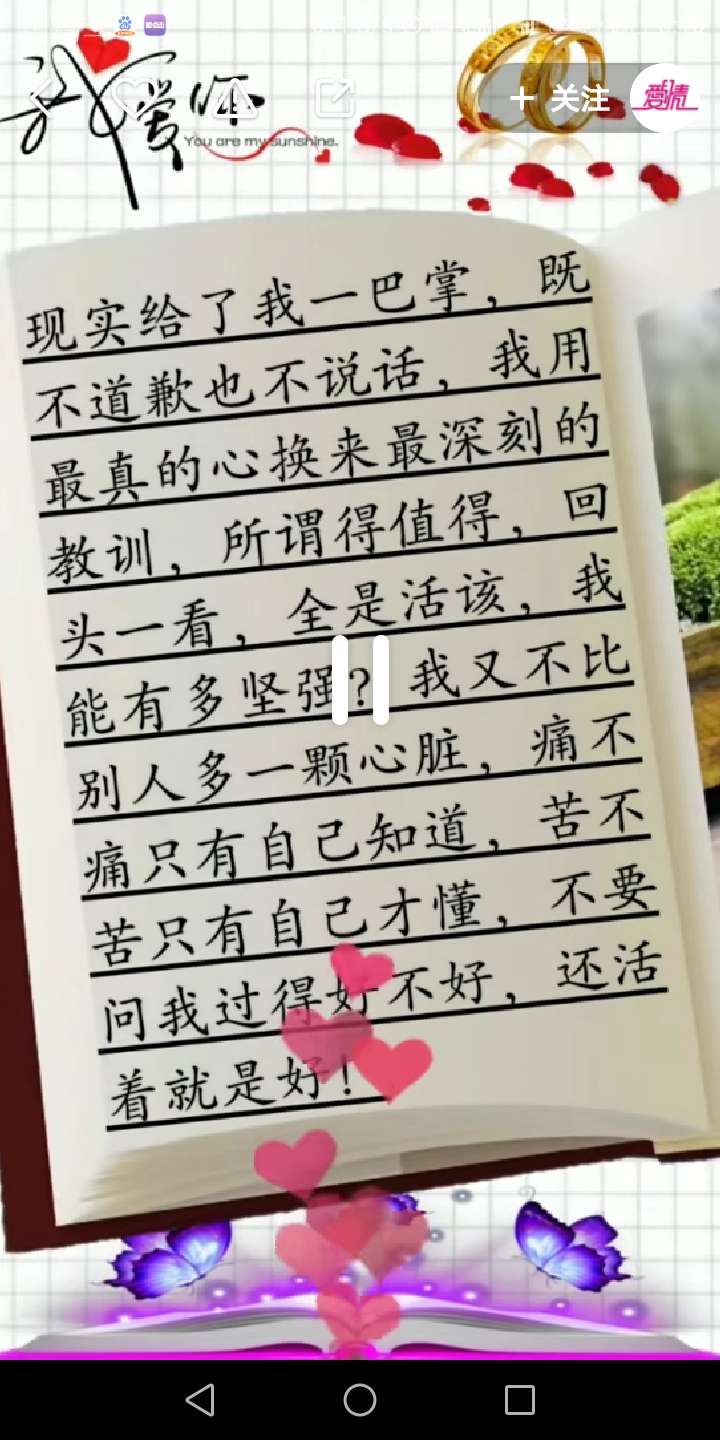 我爱你
You are my sunshine.
+ 关注
爱情
现实给了我一巴掌，既
不道歉也不说话，我用
最真的心换来最深刻的
教训，所谓得值得，回
头一看，全是活该，我
能有多坚强？我又不比
别人多一颗心脏，痛不
痛只有自己知道，苦不
苦只有自己才懂，不要
问我过得好不好，还活
着就是好！